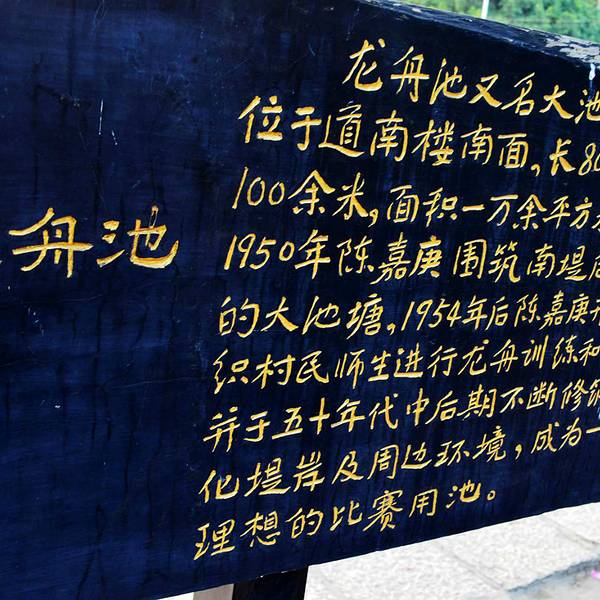 舟池
龙舟池又名大池
位于道南楼南面,长80
100余米,面积一万余平方
1950年陈嘉庚围筑南堤
的大池塘,1954年后陈嘉庚
织村民师生进行龙舟训练和
并于五十年代中后期不断修筑
化堤岸及周边环境,成为一
理想的比赛用池。